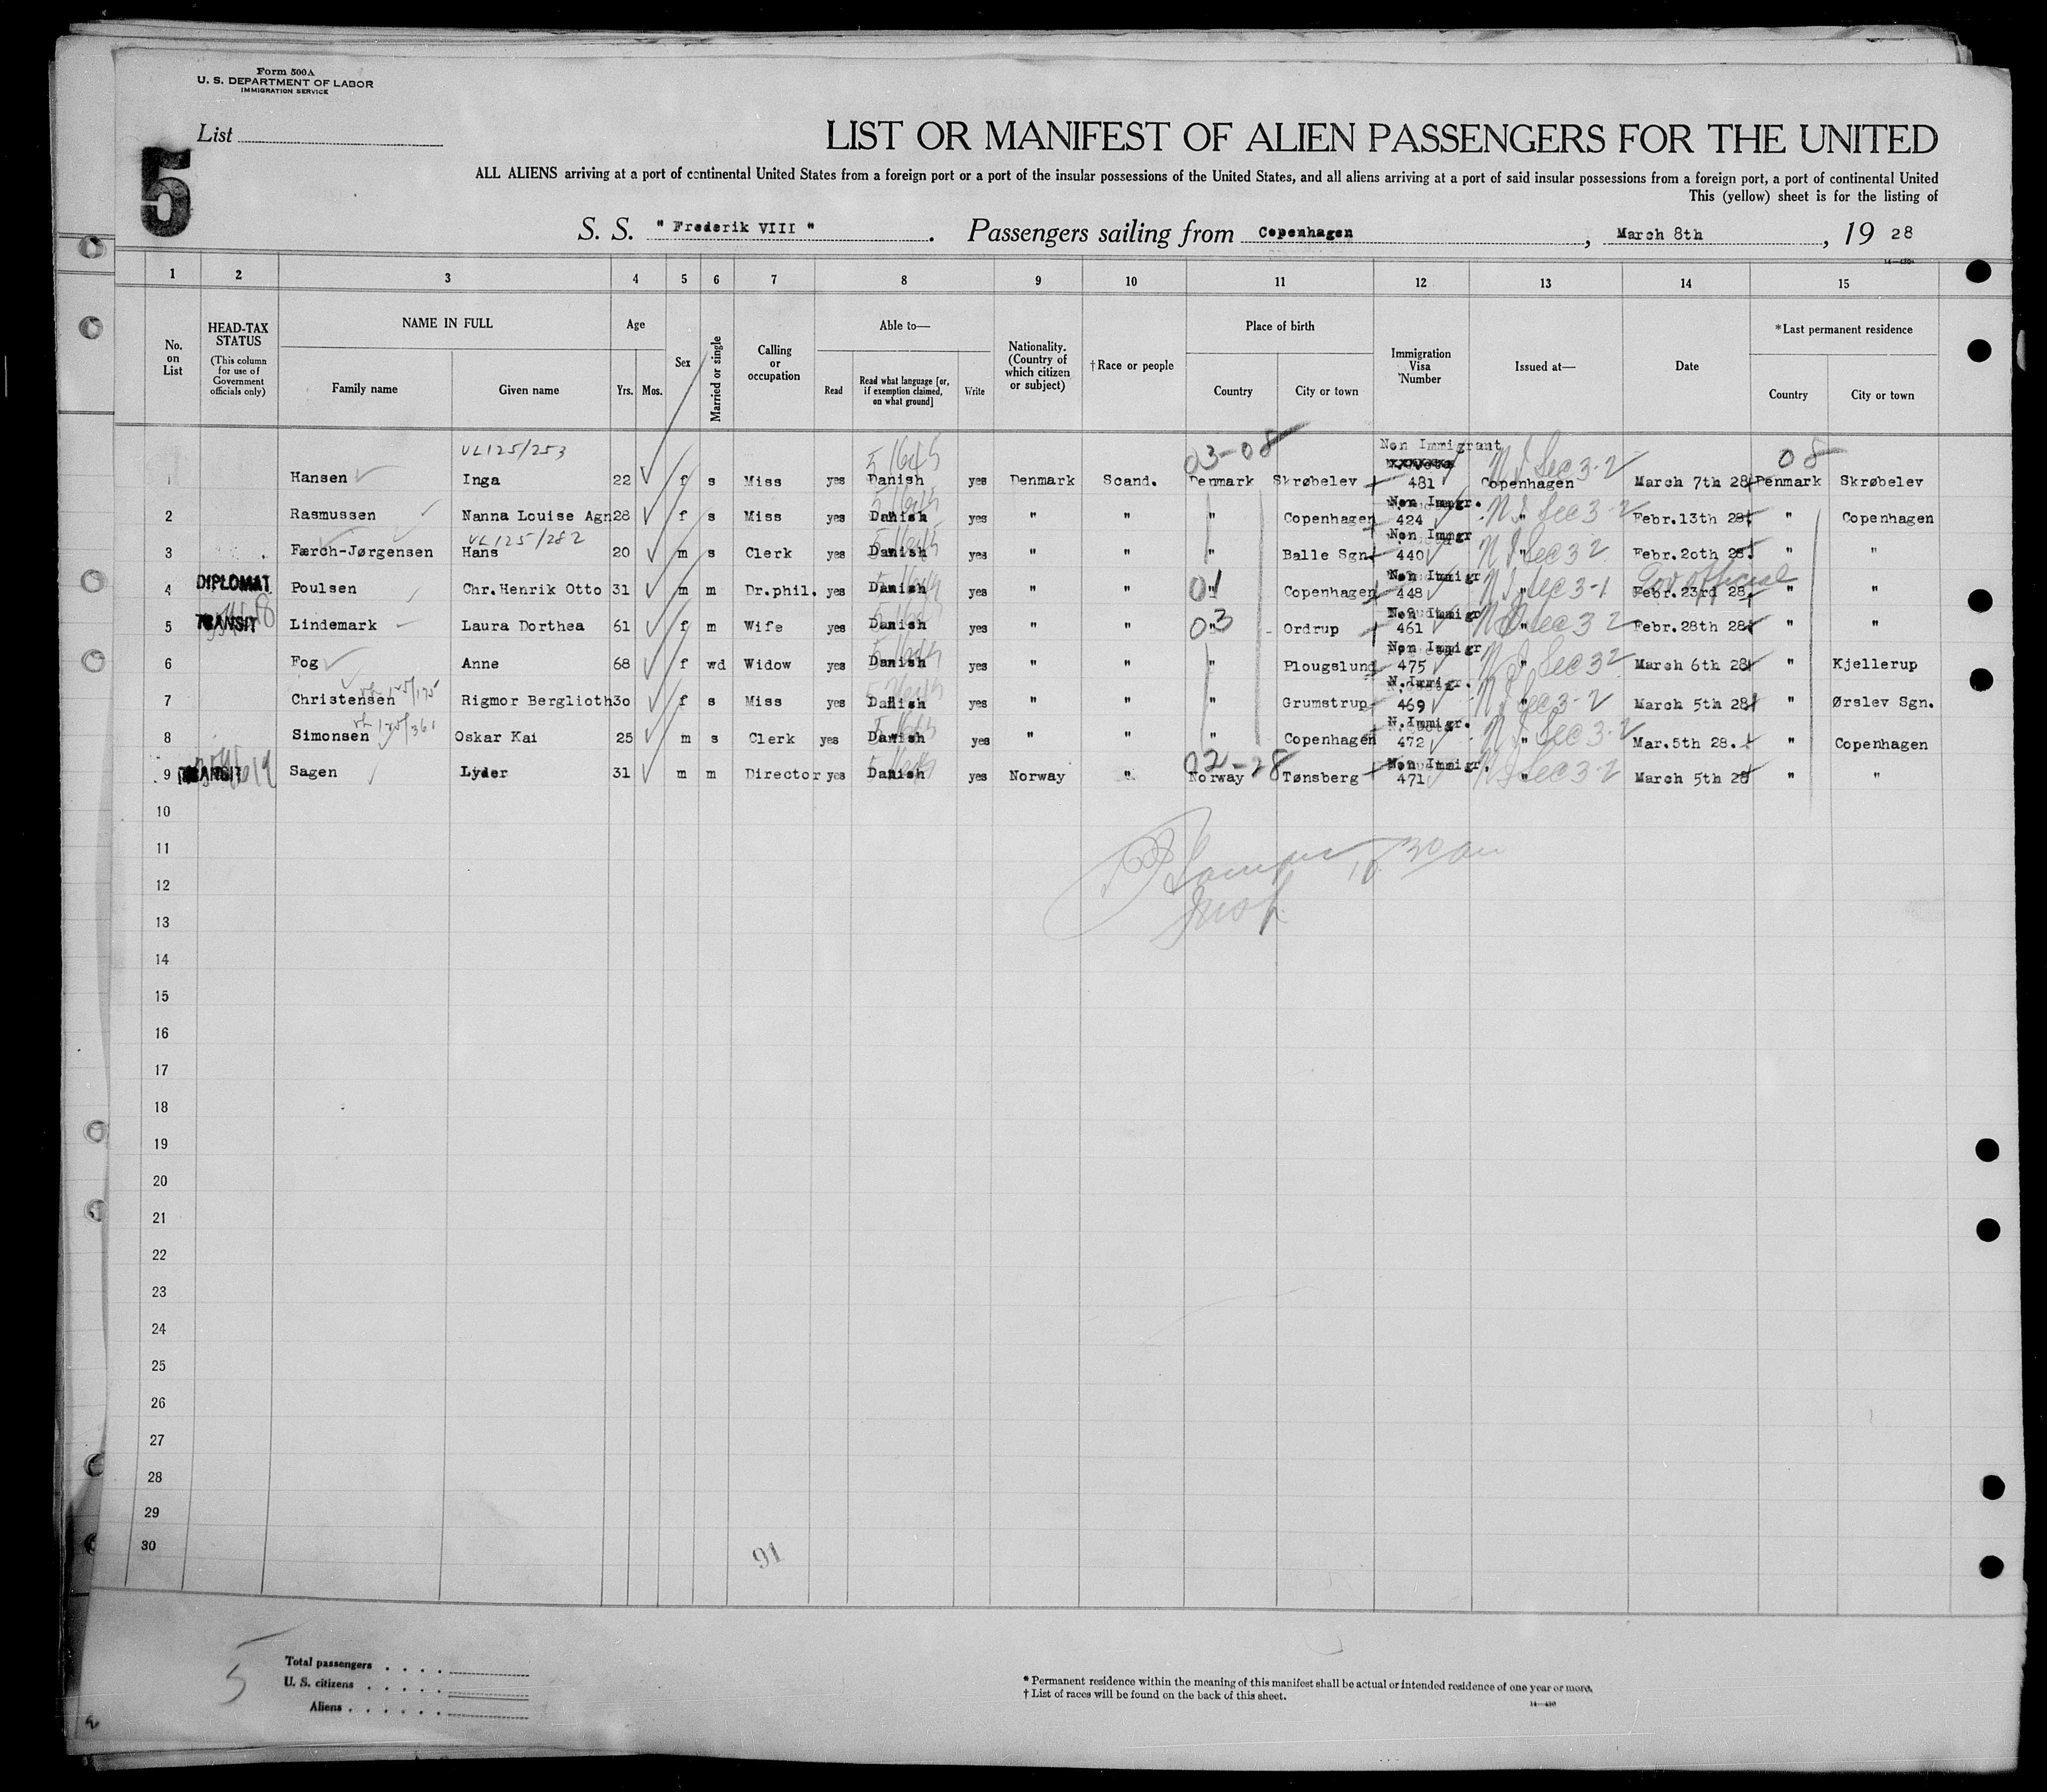 Form 500A
U. S. DEPARTMENT OF LABOR
IMMIGRATION SERVICE
List
5
LIST OR MANIFEST OF ALIEN PASSENGERS FOR THE UNITED
ALL ALIENS arriving at a port of continental United States from a foreign port or a port of the insular possessions of the United States, and all aliens arriving at a port of said insular possessions from a foreign port, a port of continental United
This (yellow) sheet is for the listing of
S. S. " Frederik VIII ". Passengers sailing from Copenhagen, March 8th, 19 28
1 2 3 4 5 6 7 8 9 10 11 12 13 14 15
No. on List
HEAD-TAX STATUS
(This column for use of Government officials only)
NAME IN FULL
Family name Given name
Age
Yrs. Mos.
Sex
Married or single
Calling or occupation
Able to—
Read
Read what language [or, if exemption claimed, on what ground]
Write
Nationality. (Country of which citizen or subject)
†Race or people
Place of birth
Country City or town
Immigration Visa Number
Issued at—
Date
*Last permanent residence
Country City or town
VL125/253 03-08 Non Immigrant 08
1 Hansen Inga 22 f s Miss yes Danish yes Denmark Scand. Denmark Skrøbelev 481 Copenhagen N I Sec 3-2 March 7th 28 Denmark Skrøbelev
Non Immgr.
2 Rasmussen Nanna Louise Agn 28 f s Miss yes Danish yes " " " Copenhagen 424 " N I Sec 3-2 Febr.13th 28 " Copenhagen
VL125/282 Non Immgr
3 Færch-Jørgensen Hans 20 m s Clerk yes Danish yes " " " Balle Sgn. 440 " N I Sec 3 2 Febr.2oth 28. " "
DIPLOMAT Non Immigr Gov official
4 Poulsen Chr.Henrik Otto 31 m m Dr.phil. yes Danish yes " " 01 " Copenhagen 448 " N I Sec 3-1 Febr.23rd 28 " "
TRANSIT Non Immigr
5 Lindemark Laura Dorthea 61 f m Wife yes Danish yes " " 03 " Ordrup 461 " Sec 3 2 Febr.28th 28 " "
Non Immigr
6 Fog Anne 68 f wd Widow yes Danish yes " " " Plougslund 475 " N I Sec 3 2 March 6th 28 " Kjellerup
N.Immigr.
7 Christensen Rigmor Berglioth 3o f s Miss yes Danish yes " " " Grumstrup 469 " N I Sec 3-2 March 5th 28 " Ørslev Sgn.
N.Immigr.
8 Simonsen Oskar Kai 25 m s Clerk yes Danish yes " " " Copenhagen 472 " N I Sec 3-2 Mar.5th 28. " Copenhagen
TRANSIT 02-28 Non Immigr.
9 Sagen Lyder 31 m m Director yes Danish yes Norway " Norway Tønsberg 471 " N I Sec 3-2 March 5th 28 " "
10
11
12
13
14
15
16
17
18
19
20
21
22
23
24
25
26
27
28
29
30
91
5
Total passengers
U. S. citizens
Aliens
* Permanent residence within the meaning of this manifest shall be actual or intended residence of one year or more.
† List of races will be found on the back of this sheet.
14—430